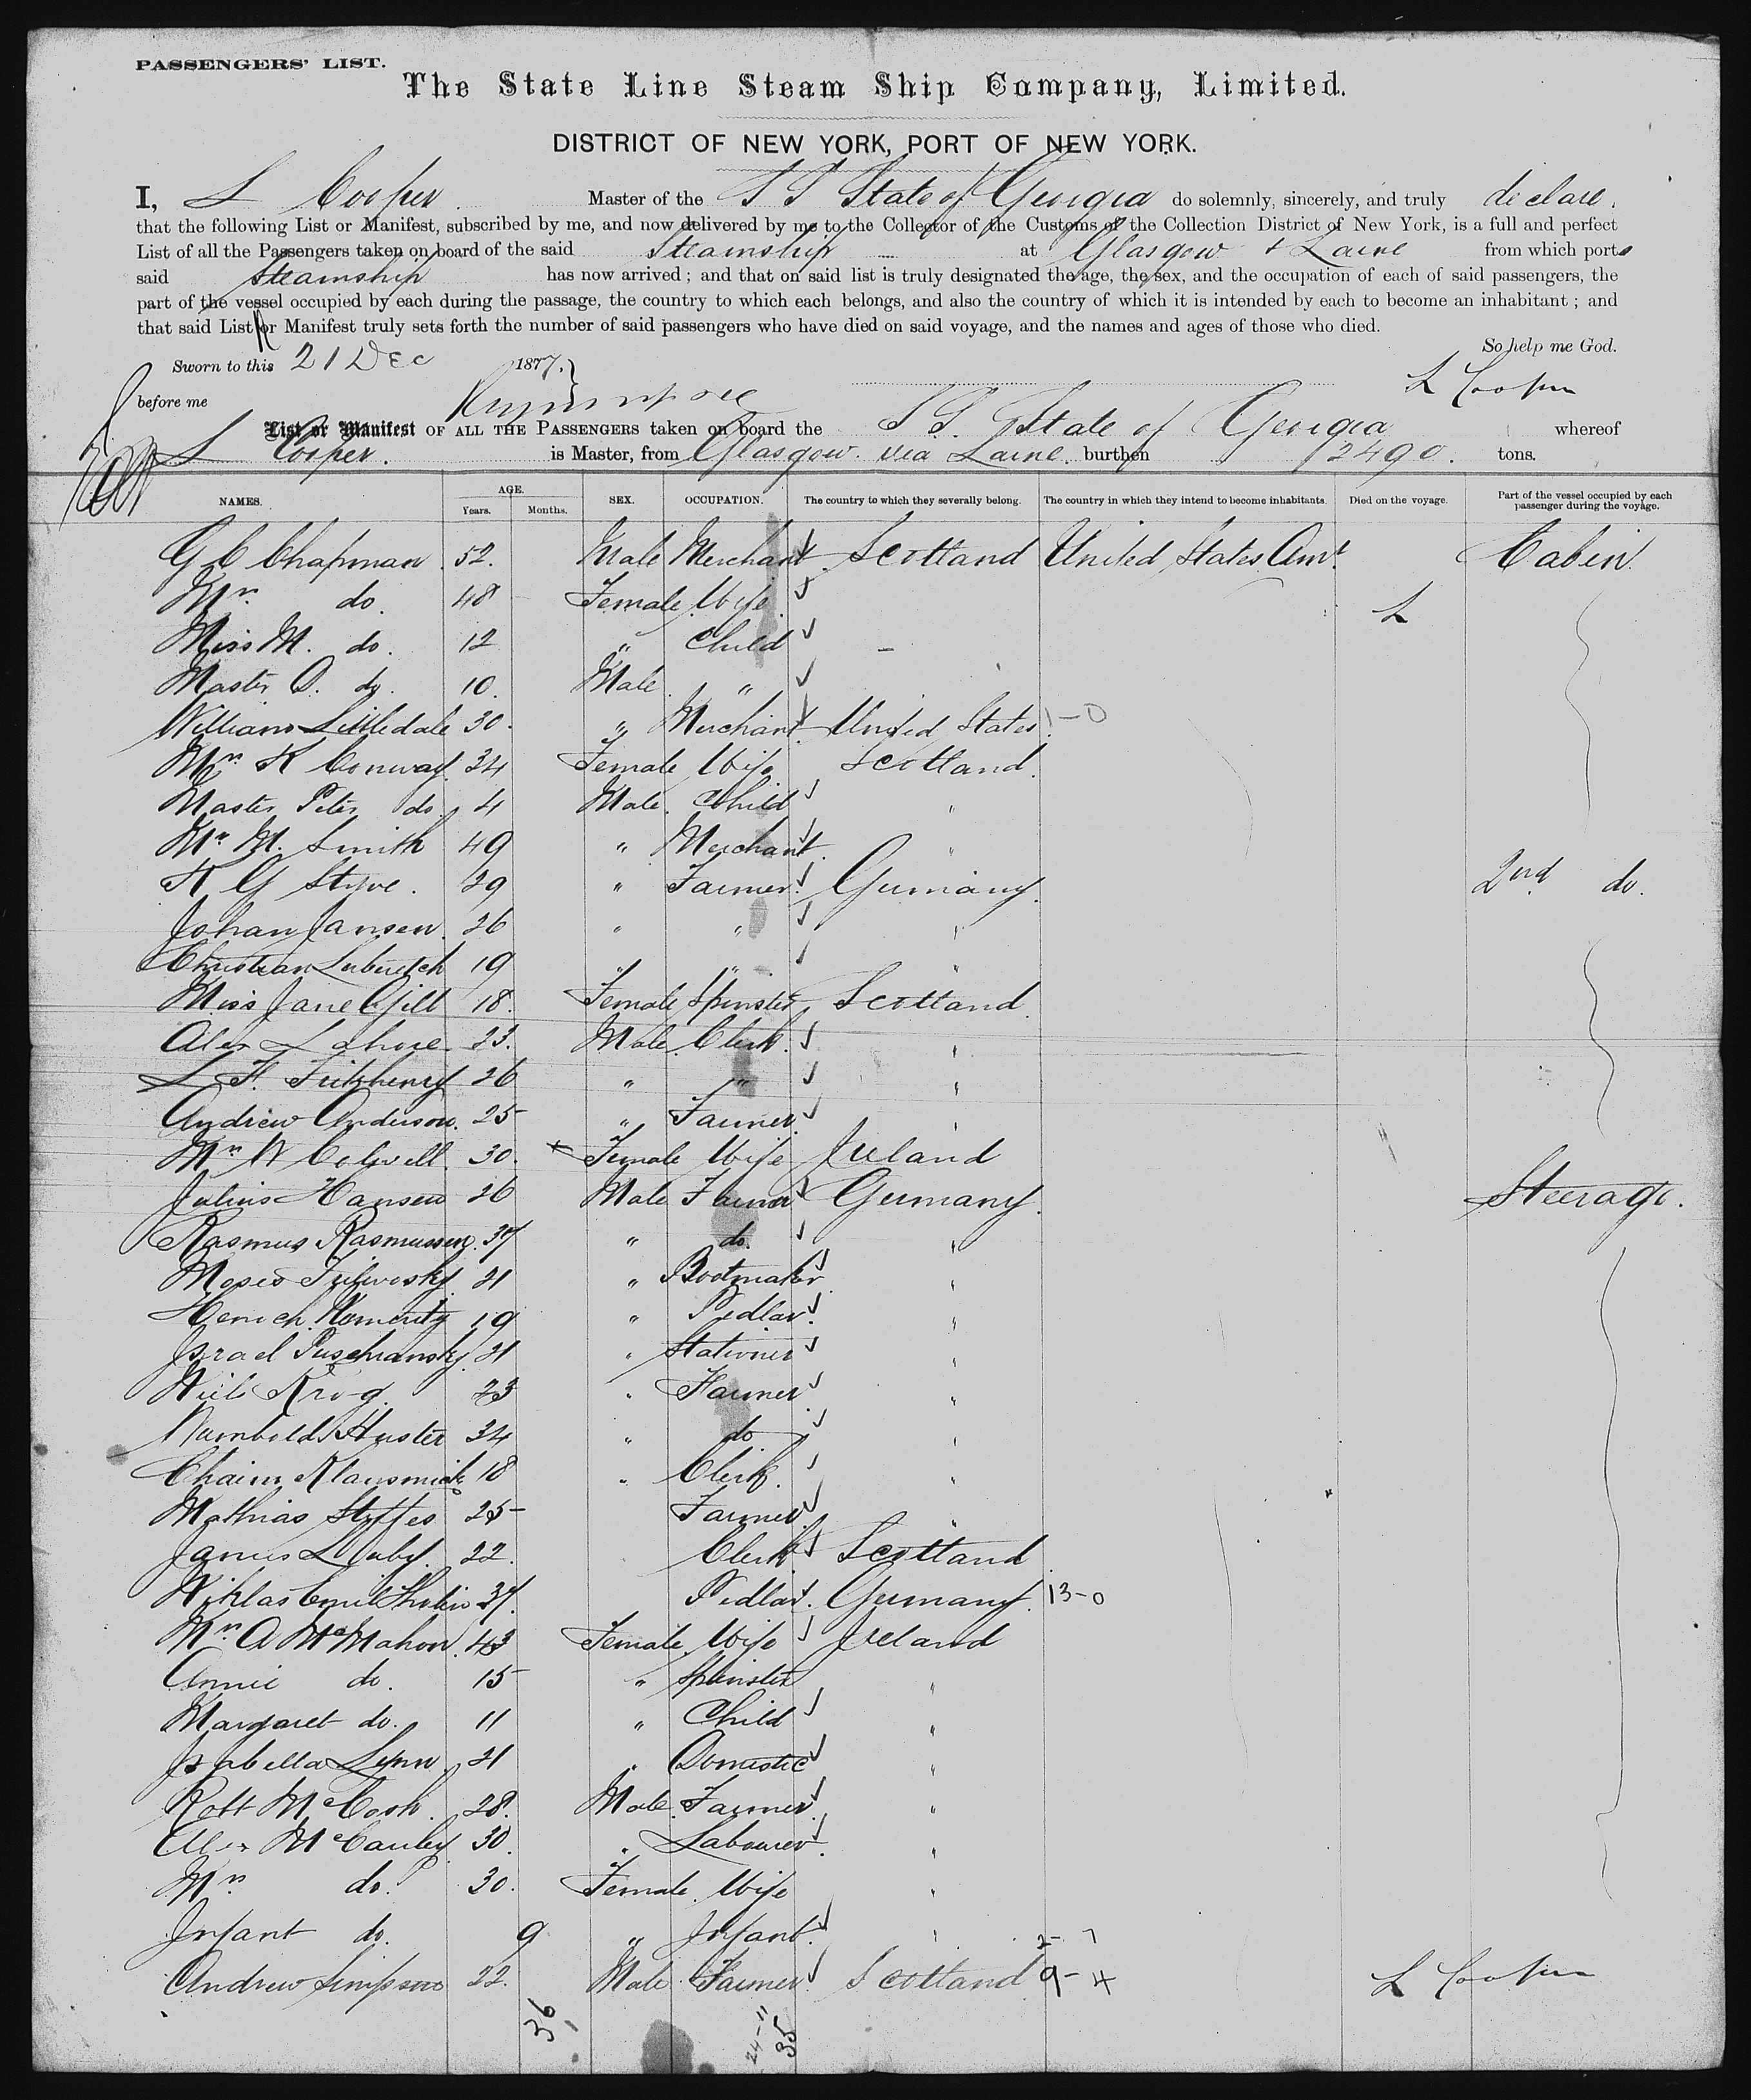 PASSENGERS' LIST.
The State Line Steam Ship Company, Limited.
DISTRICT OF NEW YORK, PORT OF NEW YORK.
I, L Cooper Master of the S S State of Georgia do solemnly, sincerely, and truly declare,
that the following List or Manifest, subscribed by me, and now delivered by me to the Collector of the Customs of the Collection District of New York, is a full and perfect
List of all the Passengers taken on board of the said Steamship at Glasgow & Larne from which ports
said Steamship has now arrived; and that on said list is truly designated the age, the sex, and the occupation of each of said passengers, the
part of the vessel occupied by each during the passage, the country to which each belongs, and also the country of which it is intended by each to become an inhabitant; and
that said List or Manifest truly sets forth the number of said passengers who have died on said voyage, and the names and ages of those who died.
So help me God.
Sworn to this 21 Dec 1877.
before me L Cooper
List or Manifest OF ALL THE PASSENGERS taken on board the S S. State of Georgia whereof
L Cooper. is Master, from Glasgow via Larne burthen 2490. tons.
NAMES. AGE. Years. Months. SEX. OCCUPATION. The country to which they severally belong. The country in which they intend to become inhabitants. Died on the voyage. Part of the vessel occupied by each passenger during the voyage.
G C Chapman 52. Male Merchant Scotland United States Am. Cabin
Mrs. do. 48 Female Wife L
Miss M. do. 12 " Child
Master O. do. 10. Male "
William Littledale 30. " Merchant United States 1-0
Mrs K Conway 34 Female Wife Scotland
Master Peter do. 4 Male Child "
Mr M. Smith 49 " Merchant "
29 " Farmer Germany 2nd do.
Johan Jansen 26 " " "
Christian 19 " " "
Miss Jane Gill 18. Female Spinster Scotland
Alex 23. Male Clerk "
L F. Fitzhenry 26 " " "
Andrew Anderson. 25 " Farmer "
Mrs W Colwell 30. x Female Wife Ireland
Julius Hansen 26 Male Farmer Germany Steerage.
Rasmus Rasmussen. 37 " do. "
Moses 21 " Bootmaker "
19 " Pedlar "
Israel Puschansky 21 " Stationer "
Niels Krog 23 " Farmer "
34 " do "
Chaim 18 " Clerk "
Mathias Steffes 25 Farmer "
James Luby 22. Clerk Scotland
Niklas Emil 37. Pedlar Germany 13-0
Mrs A McMahon 43 Female Wife Ireland
Annie do. 15 " Spinster "
Margaret do. 11 " Child "
Isabella Lynn 21 " Domestic "
Robt McCosh 28. Male Farmer "
Alex McCauley 30. " Labourer "
Mrs do. 30. Female Wife "
Infant do. 9 " Infant " 2-7
Andrew Simpson 22. Male Farmer Scotland 9-4 L Cooper
36
24-11
35